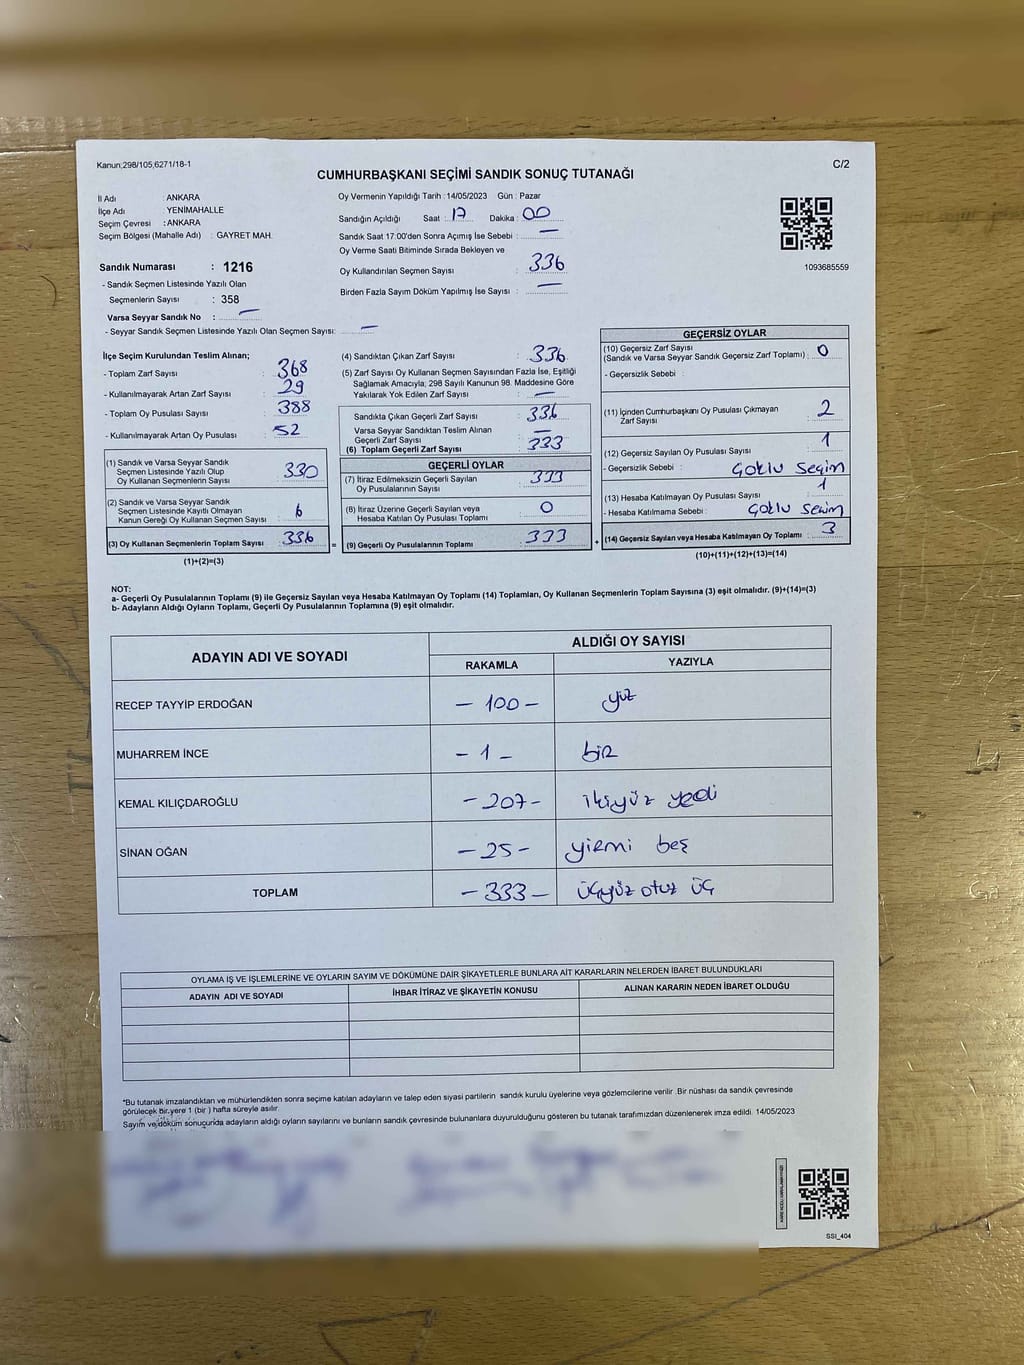 Kanun;298/105,6271/18-1
C/2
CUMHURBAŞKANI SEÇİMİ SANDIK SONUÇ TUTANAĞI
İl Adı : ANKARA
İlçe Adı : YENİMAHALLE
Seçim Çevresi : ANKARA
Seçim Bölgesi (Mahalle Adı) : GAYRET MAH.
Sandık Numarası : 1216
- Sandık Seçmen Listesinde Yazılı Olan
Seçmenlerin Sayısı : 358
Varsa Seyyar Sandık No : —
- Seyyar Sandık Seçmen Listesinde Yazılı Olan Seçmen Sayısı: —
Oy Vermenin Yapıldığı Tarih : 14/05/2023 Gün : Pazar
Sandığın Açıldığı Saat : 17 Dakika : 00
Sandık Saat 17:00'den Sonra Açımış İse Sebebi : —
Oy Verme Saati Bitiminde Sırada Bekleyen ve
Oy Kullandırılan Seçmen Sayısı : 336
Birden Fazla Sayım Döküm Yapılmış İse Sayısı : —
1093685559
İlçe Seçim Kurulundan Teslim Alınan;
- Toplam Zarf Sayısı : 368
- Kullanılmayarak Artan Zarf Sayısı : 29
- Toplam Oy Pusulası Sayısı : 388
- Kullanılmayarak Artan Oy Pusulası : 52
(1) Sandık ve Varsa Seyyar Sandık
Seçmen Listesinde Yazılı Olup
Oy Kullanan Seçmenlerin Sayısı : 330
(2) Sandık ve Varsa Seyyar Sandık
Seçmen Listesinde Kayıtlı Olmayan
Kanun Gereği Oy Kullanan Seçmen Sayısı : 6
(3) Oy Kullanan Seçmenlerin Toplam Sayısı : 336
(1)+(2)=(3)
(4) Sandıktan Çıkan Zarf Sayısı : 336
(5) Zarf Sayısı Oy Kullanan Seçmen Sayısından Fazla İse, Eşitliği
Sağlamak Amacıyla; 298 Sayılı Kanunun 98. Maddesine Göre
Yakılarak Yok Edilen Zarf Sayısı : —
Sandıkta Çıkan Geçerli Zarf Sayısı : 336
Varsa Seyyar Sandıktan Teslim Alınan
Geçerli Zarf Sayısı : —
(6) Toplam Geçerli Zarf Sayısı : 333
GEÇERLİ OYLAR
(7) İtiraz Edilmeksizin Geçerli Sayılan
Oy Pusulalarının Sayısı : 333
(8) İtiraz Üzerine Geçerli Sayılan veya
Hesaba Katılan Oy Pusulaları Toplamı : 0
= (9) Geçerli Oy Pusulalarının Toplamı : 333
GEÇERSİZ OYLAR
(10) Geçersiz Zarf Sayısı
(Sandık ve Varsa Seyyar Sandık Geçersiz Zarf Toplamı) : 0
- Geçersizlik Sebebi :
(11) İçinden Cumhurbaşkanı Oy Pusulası Çıkmayan
Zarf Sayısı : 2
(12) Geçersiz Sayılan Oy Pusulası Sayısı : 1
- Geçersizlik Sebebi : Çoklu Seçim
(13) Hesaba Katılmayan Oy Pusulası Sayısı : 1
- Hesaba Katılmama Sebebi : Çoklu Seçim
+ (14) Geçersiz Sayılan veya Hesaba Katılmayan Oy Toplamı : 3
(10)+(11)+(12)+(13)=(14)
NOT:
a- Geçerli Oy Pusulalarının Toplamı (9) ile Geçersiz Sayılan veya Hesaba Katılmayan Oy Toplamı (14) Toplamları, Oy Kullanan Seçmenlerin Toplam Sayısına (3) eşit olmalıdır. (9)+(14)=(3)
b- Adayların Aldığı Oyların Toplamı, Geçerli Oy Pusulalarının Toplamına (9) eşit olmalıdır.
ADAYIN ADI VE SOYADI
ALDIĞI OY SAYISI
RAKAMLA YAZIYLA
RECEP TAYYİP ERDOĞAN — 100 — yüz
MUHARREM İNCE — 1 — bir
KEMAL KILIÇDAROĞLU — 207 — ikiyüz yedi
SİNAN OĞAN — 25 — yirmi beş
TOPLAM — 333 — üçyüz otuz üç
OYLAMA İŞ VE İŞLEMLERİNE VE OYLARIN SAYIM VE DÖKÜMÜNE DAİR ŞİKAYETLERLE BUNLARA AİT KARARLARIN NELERDEN İBARET BULUNDUKLARI
ADAYIN ADI VE SOYADI İHBAR İTİRAZ VE ŞİKAYETİN KONUSU ALINAN KARARIN NEDEN İBARET OLDUĞU
*Bu tutanak imzalandıktan ve mühürlendikten sonra seçime katılan adayların ve talep eden siyasi partilerin sandık kurulu üyelerine veya gözlemcilerine verilir .Bir nüshası da sandık çevresinde
görülecek bir yere 1 (bir ) hafta süreyle asılır.
Sayım ve döküm sonucunda adayların aldığı oyların sayılarını ve bunların sandık çevresinde bulunanlara duyurulduğunu gösteren bu tutanak tarafımızdan düzenlenerek imza edildi. 14/05/2023
SSI_404